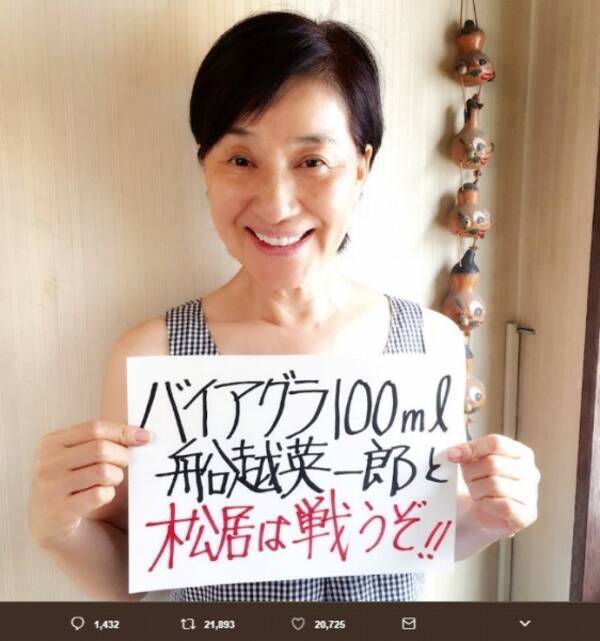 バイアグラ100ml
船越英一郎と
松居は戦うぞ!!
1,432 21,893 20,725